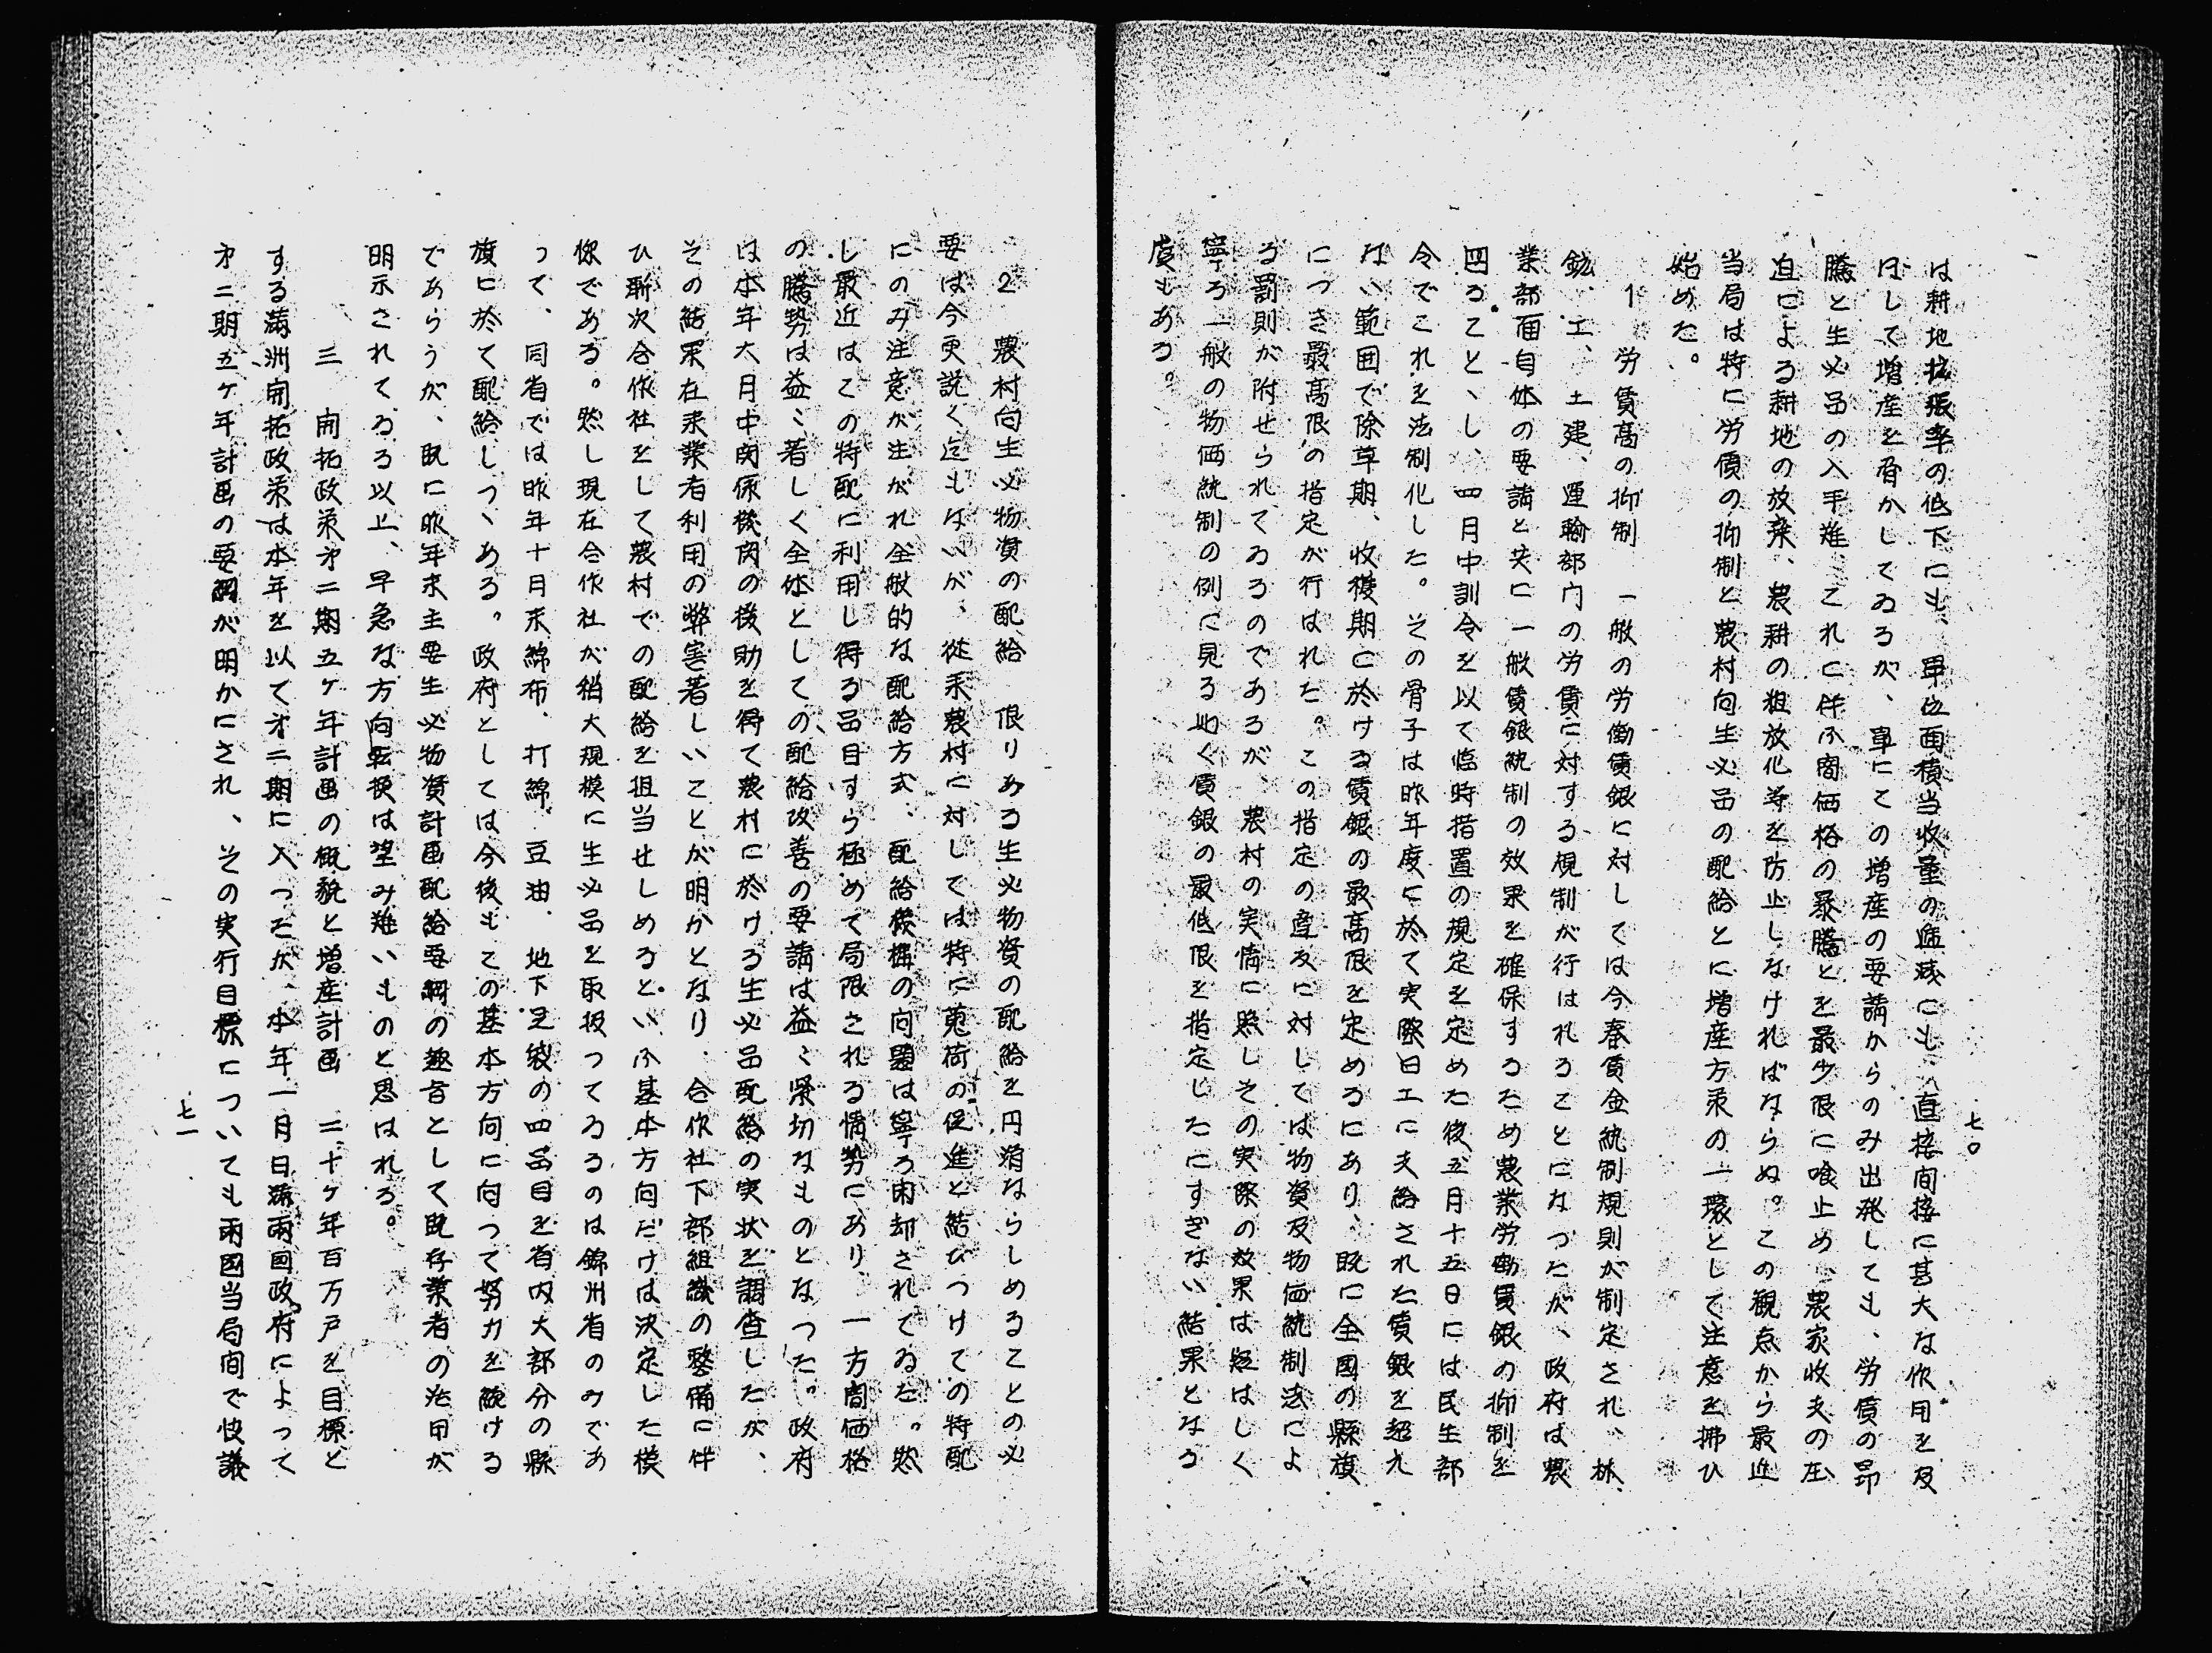 七〇
は耕地拡張率の低下にも、単位面積当收量の逓減にも、直接間接に甚大な作用を及
ぼして増産を脅かしてゐるが、単にこの増産の要請からのみ出発しても、労賃の昂
騰と生必品の入手難、これに伴ふ闇価格の暴騰とを最少限に喰止め、農家收支の圧
迫による耕地の放棄、農耕の粗放化等を防止しなければならぬ。この観点から最近
当局は特に労賃の抑制と農村向生必品の配給とに増産方策の一環として注意を拂ひ
始めた。
1　労賃高の抑制　一般の労働賃銀に対しては今春賃金統制規則が制定され、林、
鉱、工、土建、運輸部门の労賃に対する規制が行はれることになつたが、政府は農
業部面自体の要請と共に一般賃銀統制の效果を確保するため農業労働賃銀の抑制を
図ること、し、四月中訓令を以て臨時措置の規定を定めた後五月十五日には民生部
令でこれを法制化した。その骨子は昨年度に於て実際日工に支給された賃銀を超え
ない範囲で除草期、收穫期に於ける賃銀の最高限を定めるにあり、既に全国の縣旗
につき最高限の指定が行はれた。この指定の違反に対しては物資及物価統制法によ
る罰則が附せられてゐるのであるが、農村の実情に照しその実際の效果は疑はしく
寧ろ一般の物価統制の例に見る如く賃銀の最低限を指定したにすぎない結果となる
虞もある。
2　農村向生必物資の配給　限りある生必物資の配給を円滑ならしめることの必
要は今更説く迄もないが、従来農村に対しては特に蒐荷の促進と結びつけての特配
にのみ注意が注がれ全般的な配給方式、配給機構の问題は寧ろ困却されてゐた。然
し最近はこの特配に利用し得る品目すら極めて局限される情勢にあり、一方闇価格
の騰勢は益〻著しく全体としての配給改善の要請は益〻緊切なものとなつた。政府
は本年六月中関係機関の援助を得て農村に於ける生必品配給の実状を調査したが、
その結果在来業者利用の弊害著しいことが明かとなり、合作社下部組織の整備に伴
ひ漸次合作社をして農村での配給を担当せしめるといふ基本方向だけは決定した模
様である。然し現在合作社が稍大規模に生必品を取扱つてゐるのは錦州省のみであ
つて、同省では昨年十月末綿布、打綿、豆油、地下足袋の四品目を省内大部分の縣
旗に於て配給しつゝある。政府としては今後もこの基本方向に向つて努力を続ける
であらうが、既に昨年末主要生必物資計画配給要綱の趣旨として既存業者の活用が
明示されてゐる以上、早急な方向転換は望み難いものと思はれる。
三　開拓政策才二期五ケ年計画の概貌と増産計画　二十ケ年百万戸を目標と
する満洲開拓政策は本年を以て才二期に入つたが、本年一月日満両国政府によつて
才二期五ケ年計画の要綱が明かにされ、その実行目標についても両国当局间で快議
七一